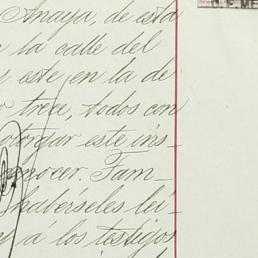 Anaya, de esta
la calle del
este, en la de
trece, todos con
otorgar este ins-
conocer. Fam-
habérseles lei-
á los testigos